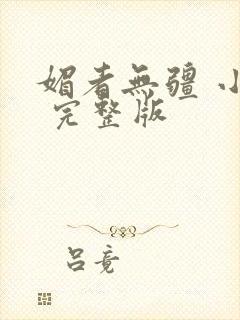 媚者無疆 小
完整版
呂竟